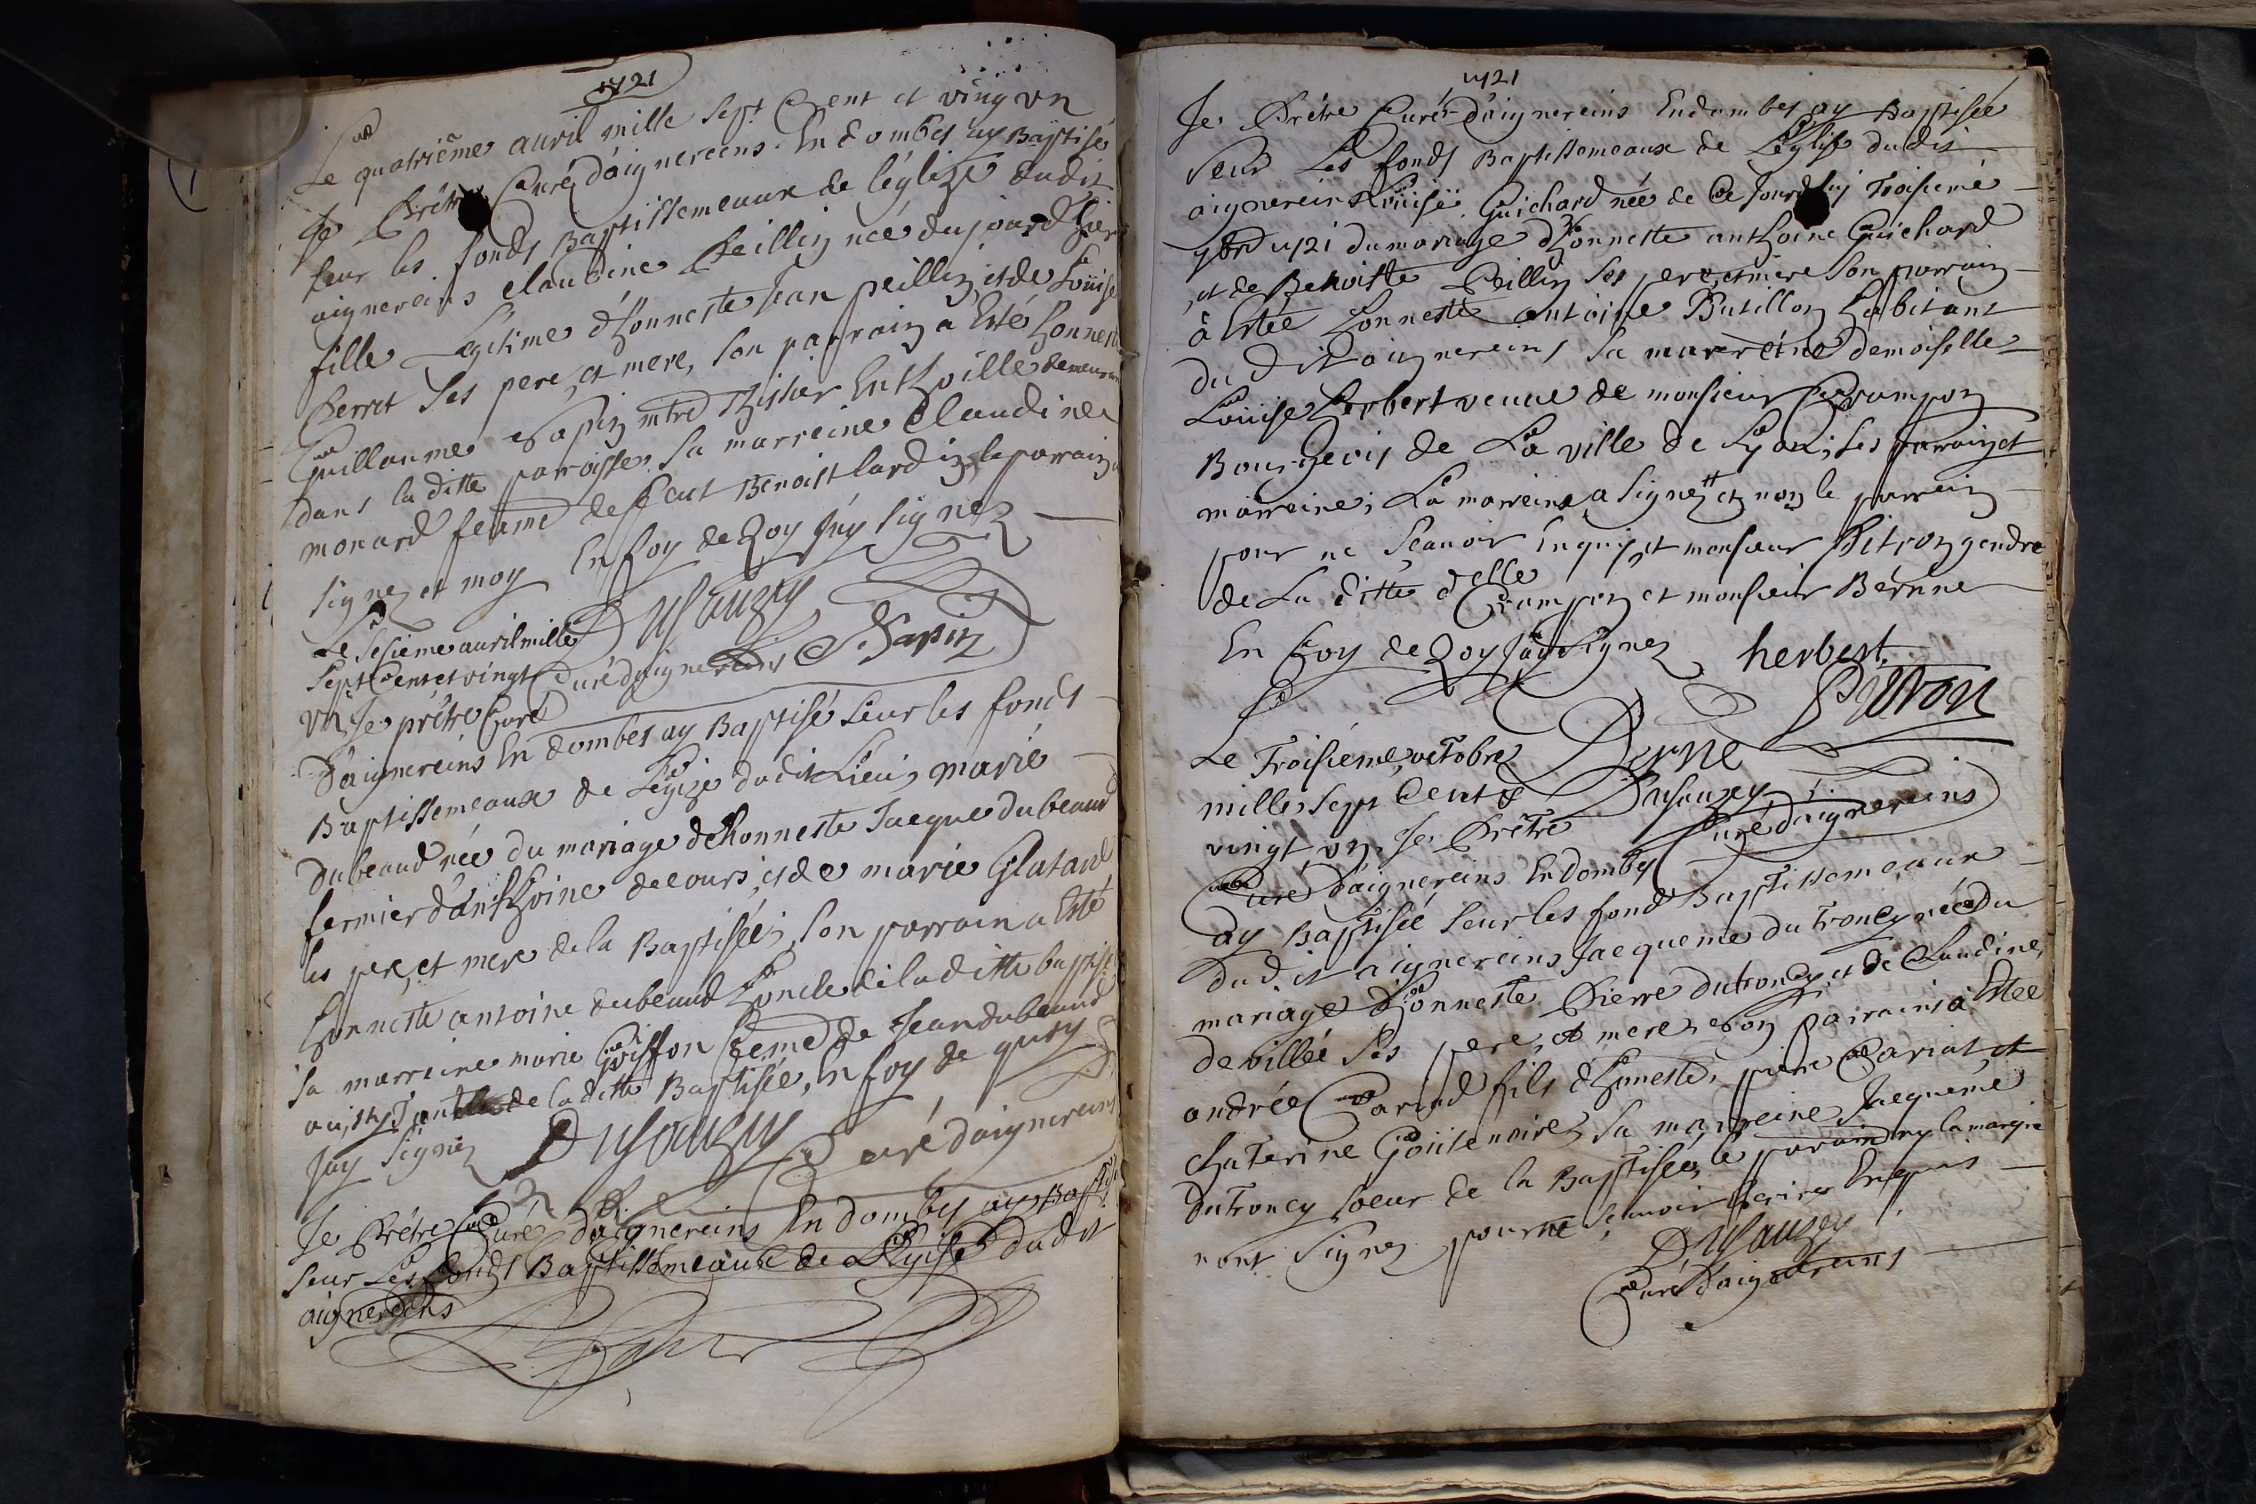 1721
Le quatriéme auril mille sept Cent et ving vn
Je Prêtre Curé d'aignereins En dombes ay Baptisé
seur les fonds Baptissemeaux de léglize dudit
aignereins claudine Peillin née du jourd hier
fille Légitime d'honneste Jean peillin et de Loüise
Perret ses pere et mere, son parrain a Esté honneste
Guillaume Sapin mtre
dans la ditte paroisse, Sa marreine Claudine
monard feame de feut Benoist lardin le parain
signez et moy En foy de Qoy j'ay signez
Dusauzey
Curé daignereins S. Sapin
Le sesieme auril mille
Sept Cent et vingt
vn, Je prêtre Curé
D'aignereins En dombes ay Baptisé seur les fonds
Baptissemeaux de Legize dudit Lieu, marie
dubeaud née du mariage de honneste Jacque dubeaud
fermier d'anthoine decours, et de marie Glatard
les pere et mere de la Baptisée, son parrain a Esté
honneste antoine dubeaud Loncle de la ditte baptisé
sa marreine marie Griffon feme de Jean dubeaud
aussy tante de la ditte Baptisée, En foy de quoy
j'ay Signéz Dusauzey Curé daignereins
Je Prêtre Curé daignereins En dombes ay Baptisé
seur Les fonds Baptissemeaux de Léglise dudit
aignereins
1721
Je Prêtre Curé d'aignereins En dombes ay Baptisée
seur Les fonds Baptissemeaux de Léglise dudit
aignereins Loüise Guichard née de Ce Jourdhuj Troisieme
1721 du mariage d'honneste anthoine Guichard
et de Benoiste Peillin ses pere et mere son parrain
à Estée honneste antoine Butillon habitant
du dit aignereins sa marreine demoiselle
Loüise herbert veuue de monsieur Crampon
Bourgeois de La ville de Lyon; ses parrain et
marreine; La marreine a signez et non le parrain
pour ne sçauoir Enquis, et monsieur Pitron gendre
de La ditte delle Crampon et monsieur Bérnne
En foy de Qoy Jay signez herbert
Pitron
Le Troisiéme octobre
mille sept Cent &
vingt vn Je Prêtre Dusauzey
Curé daignereins
Curé d'aignereins En dombes
ay Baptisée seur les fond Baptissemeaux
dudit aignereins Jacqueme dutroncy née du
mariage d'honneste Pierre dutroncy et de Claudine
de villée ses pere et mere, son parrains à Estee
andrée Cariad fils d'honneste pierre Cariat et
chaterine Goütenoire, sa marreine Jacqueme
dutroncy soeur de la Baptisée, le parain ny la mareine
n'ont signez pour ne sçauoir écrire Enquis
Dusauzey
Curé d'aignereins